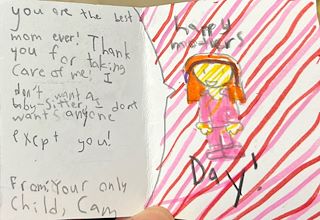 you are the best
mom ever! Thank
you for taking
care of me! I
don't want a
baby-sitter I dont
want anyone
excpt you!
From: Your only
Child, Cam
happy
mothers
Day!